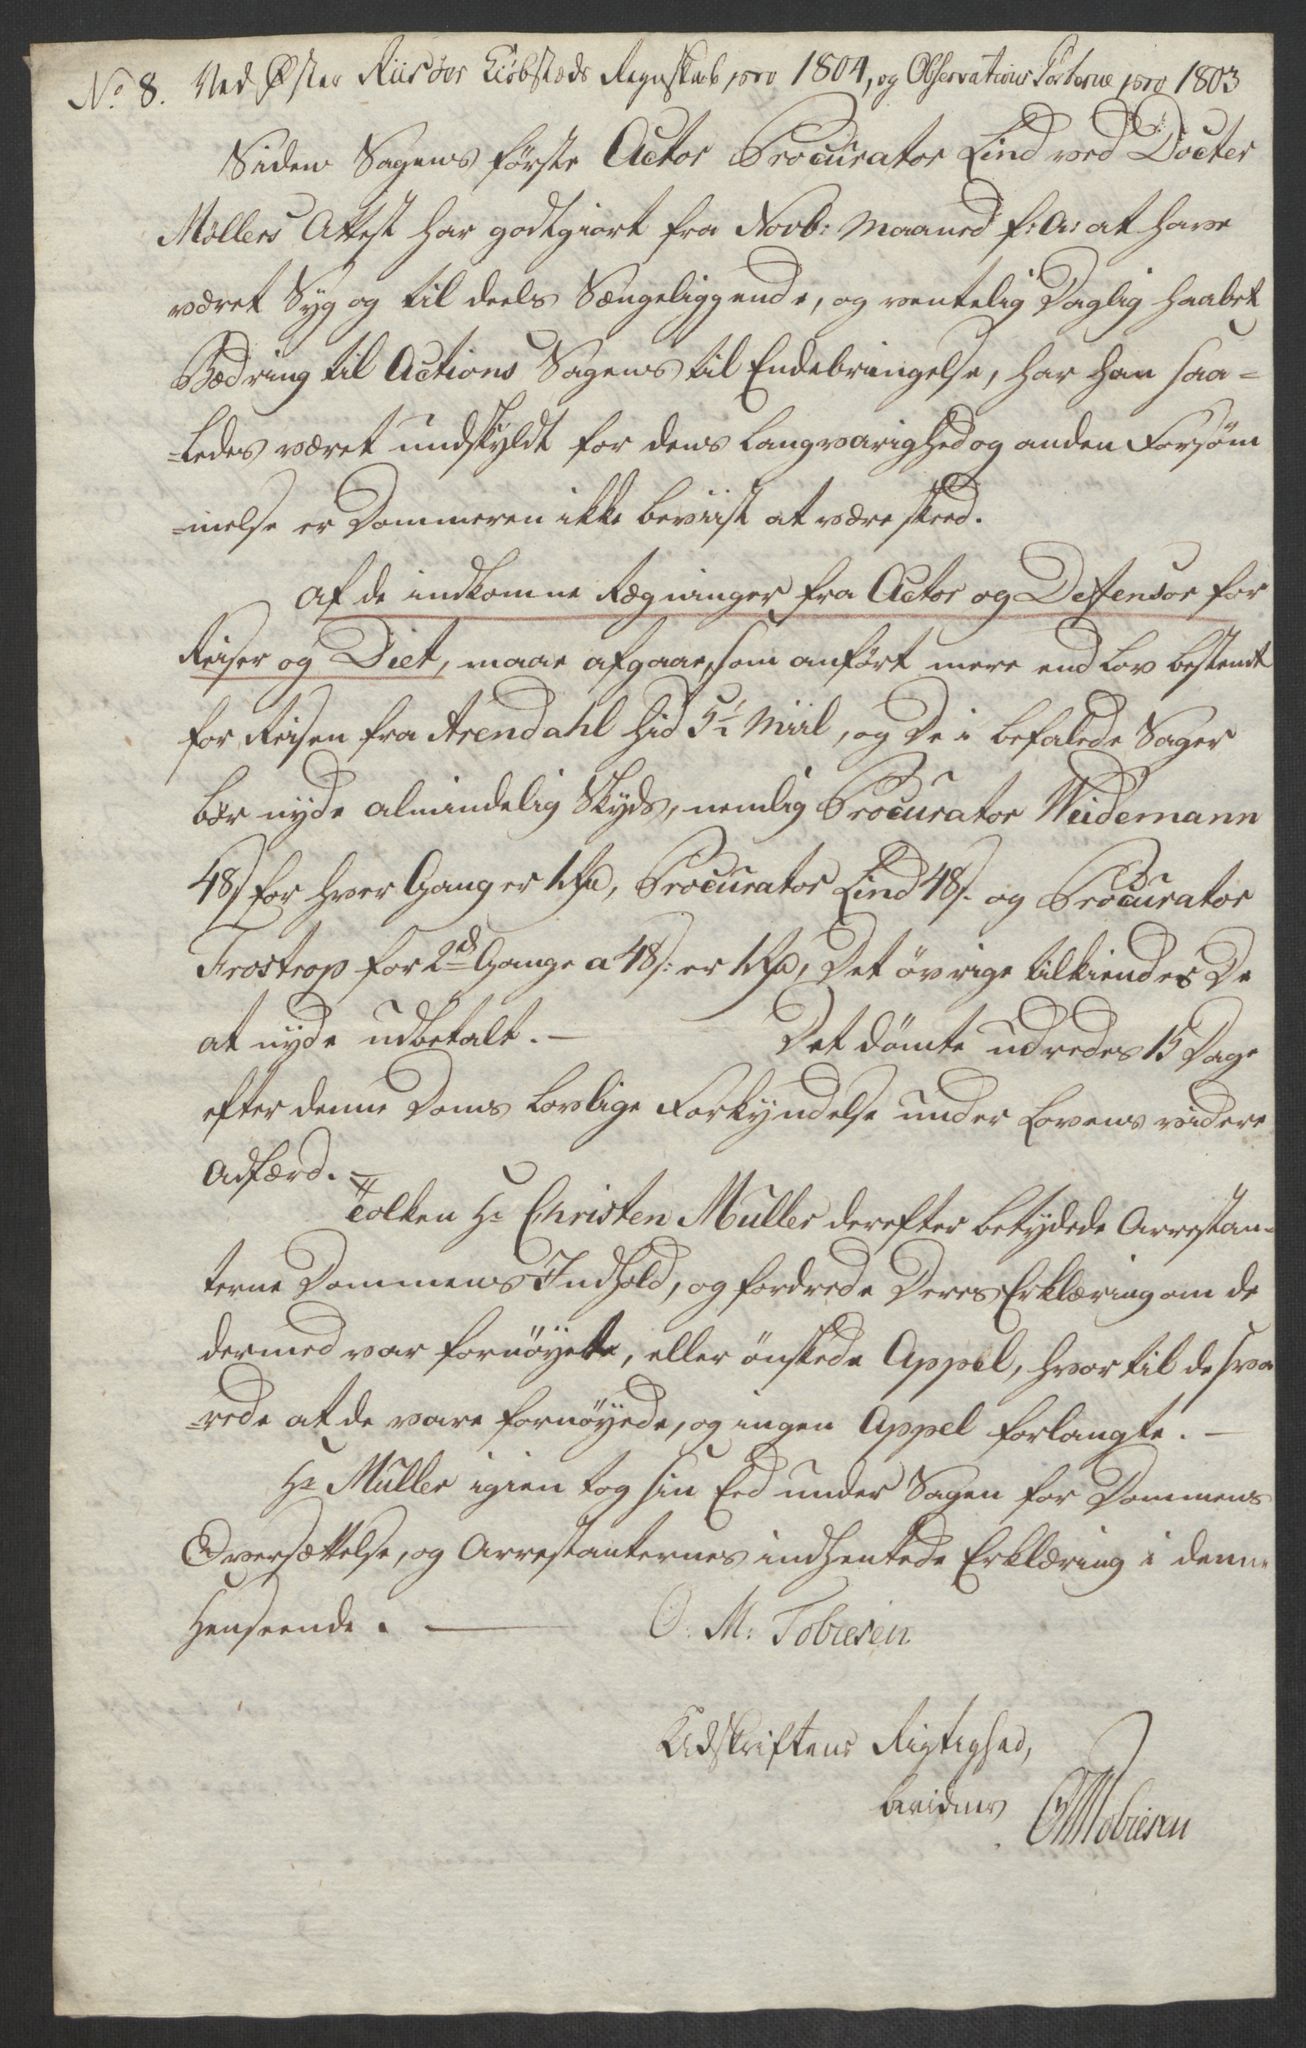 No 8. Ved Øster Riisöer Kiöbstæds Regnskab pro 1804, og Observations Posterne pro 1803
Siden Sagens förste Actor Procurator Lind ved Docter
Möllers Attest har godtgiort fra Novb: Maaned f: A: at have
været Syg og til deels Sængeliggende, og ventelig Daglig haabet
Bædring til Actions Sagens til Endebringelse, har han saa-
-ledes været undskyldt for dens langvarighed og anden Forsöm
-melse er Dommeren ikke beviist at være skeed.
Af de indkomne Rægninger fra Actor og Deffensor for
Reiser og Diet, maae afgaae, som anfört mere end lov bestemt
for Reisen fra Arendahl hid 5½ Miil, og De i befalede Sager
bær nyde almindelig Skyds, nemlig Procurator Weidemann
48 s for hver Gang er 1 Rd, Procurator Lind 48 s. og Procurator
Frostrop for 2de Gange a 48 s: er 1 Rd, Det övrige tilkiendes De
at nyde udbetalt. — Det dömte udredes 15 Dage
efter denne Doms lovlige Forkyndelse under Lovens videre
Adfærd. —
Tolken Hr Christen Muller derefter betydede Arrestan-
terne Dommens Indhold, og fordrede Deres Erklæring om de
dermed var fornöyede, eller önskede Appel, hvortil de sva
-rede at de vare fornöyede, og ingen Appel forlangte. —
Hr Müller igien tog sin Eed under Sagen for Dommens
Oversættelse, og Arrestanternes indhentede Erklæring i denne
Henseende. — O: M: Tobiesen.
Udskriftens Rigtighed,
bevidner OMTobiesen